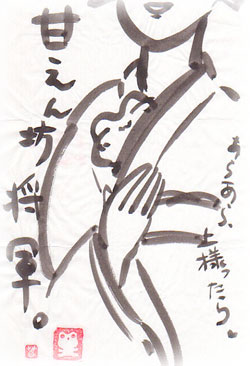 甘えん坊将軍。
あらあら、
上様ったら。